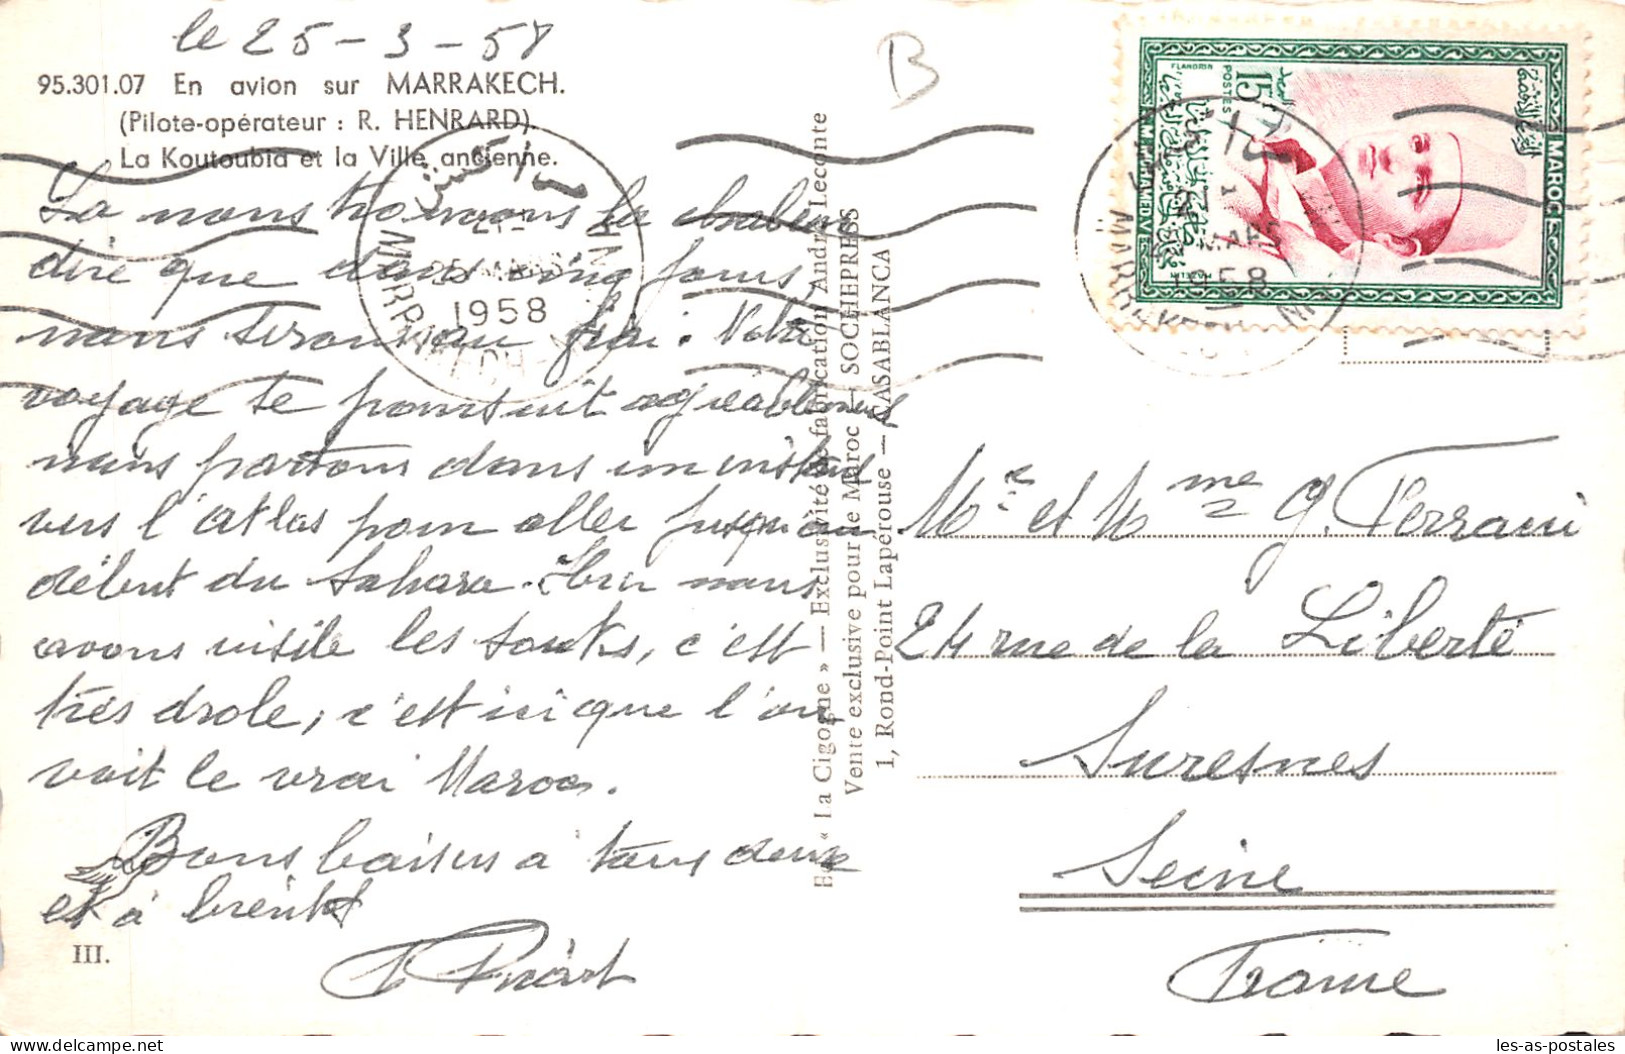 le 25-3-58
95.301.07 En avion sur MARRAKECH.
(Pilote-opérateur : R. HENRARD).
La Koutoubia et la Ville ancienne.
La nous trouvons la chaleur
dire que dans cinq jours,
nous serons au frai. Votre
voyage se poursuit agréablement
nous partons dans un instant
vers l'atlas pour aller jusqu'au
début du Sahara. Hier nous
avons visité les souks, c'est
très drole, c'est ici que l'on
voit le vrai Maroc.
Bons baisers à tous deux
et à bientôt
III.
Ed. « La Cigogne » — Exclusivité de fabrication André Leconte
Vente exclusive pour le Maroc — SOCHEPRESS
1, Rond-Point Lapérouse — CASABLANCA
B
15
POSTES
FLANDRIN
MAROC
مراكش
25 MARS
1958
MARRAKECH
MARS
1958
MARRAKECH
Mr et Mme G.
24 rue de la Liberté
Suresnes
Seine
France
les-as-postales